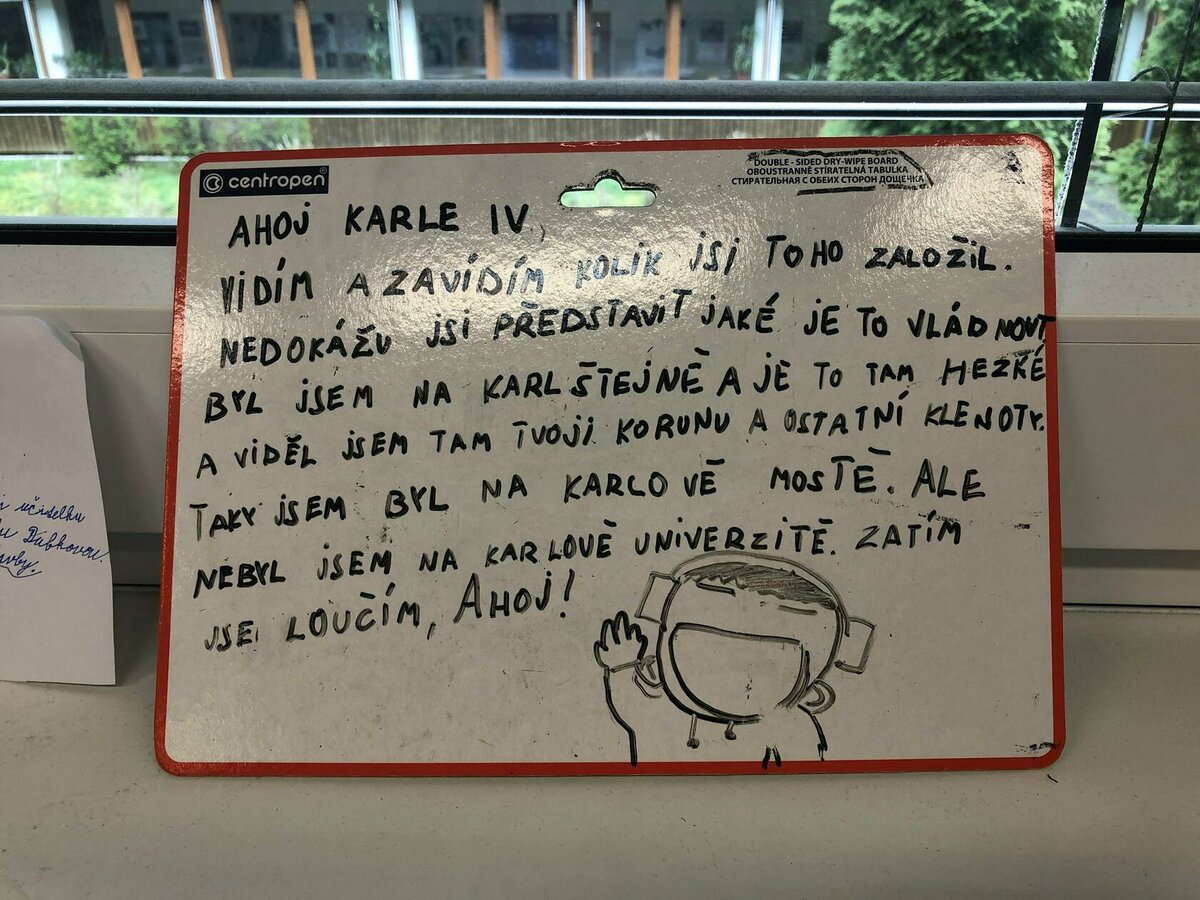 centropen
DOUBLE - SIDED DRY-WIPE BOARD
OBOUSTRANNĚ STÍRATELNÁ TABULKA
СТИРАТЕЛЬНАЯ С ОБЕИХ СТОРОН ДОЩЕЧКА
AHOJ KARLE IV,
VIDÍM A ZAVÍDÍM KOLIK JSI TOHO ZALOŽIL.
NEDOKÁŽU JSI PŘEDSTAVIT JAKÉ JE TO VLÁDNOUT
BYL JSEM NA KARLŠTEJNĚ A JE TO TAM HEZKÉ
A VIDĚL JSEM TAM TVOJI KORUNU A OSTATNÍ KLENOTY.
TAKY JSEM BYL NA KARLOVĚ MOSTĚ. ALE
NEBYL JSEM NA KARLOVĚ UNIVERZITĚ. ZATÍM
JSE LOUČÍM, AHOJ!
učitelku